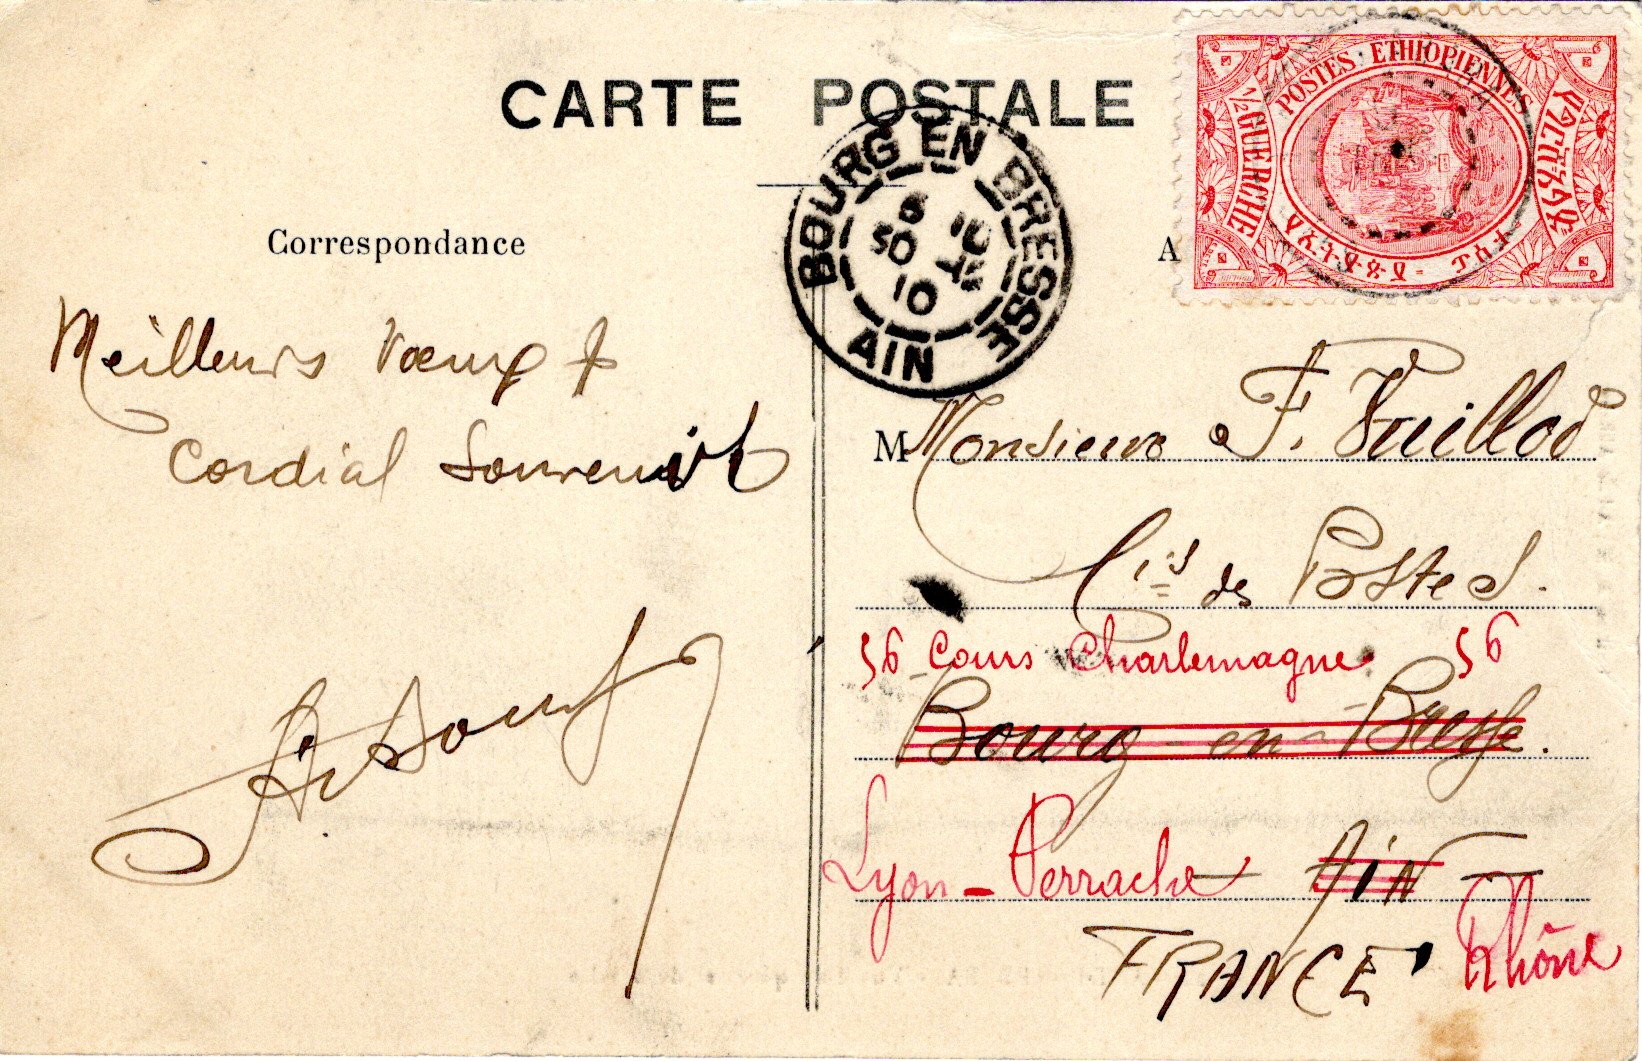 CARTE POSTALE
POSTES ETHIOPIENNES
1/2 GUERCHE
BOURG EN BRESSE
6 10
30 12
10
AIN
Correspondance
A
Meilleurs Vœux &
Cordial Souvenir
M Monsieur F. Vuillod
Cis des Postes.
56 Cours Charlemagne 56
Bourg-en-Bresse.
Lyon-Perrache Ain
FRANCE Rhône